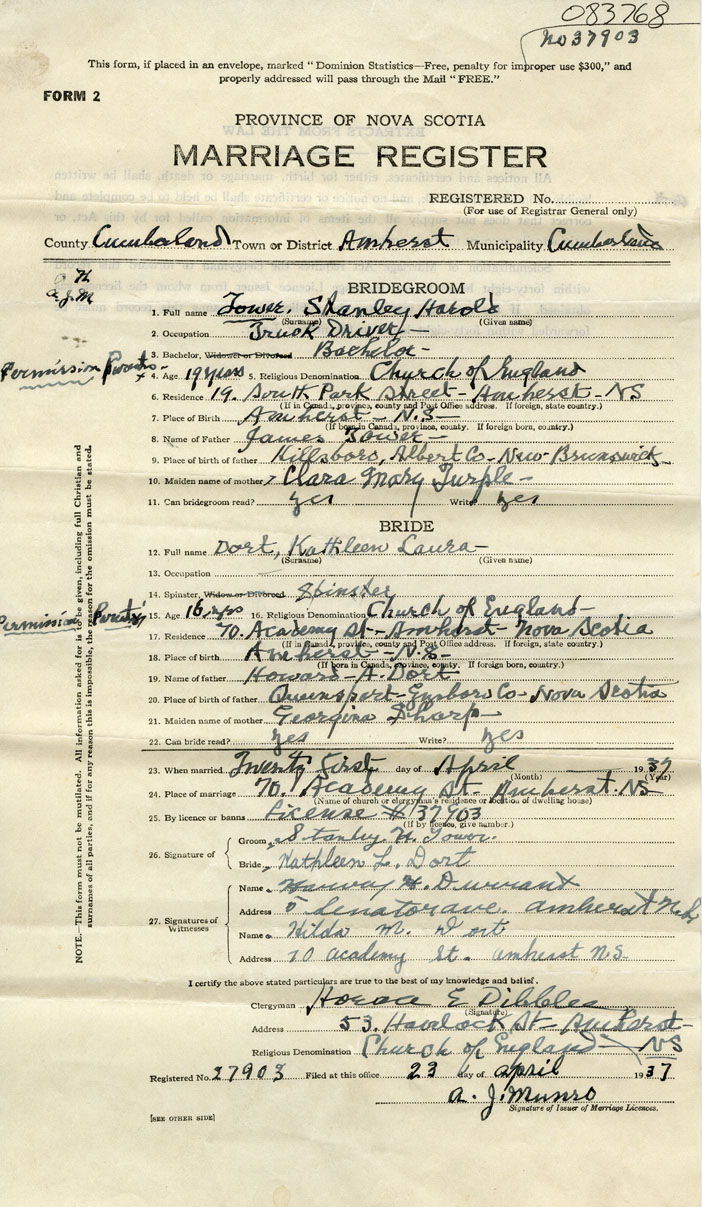 083768
No 37903
This form, if placed in an envelope, marked "Dominion Statistics—Free, penalty for improper use $300," and
properly addressed will pass through the Mail "FREE."
FORM 2
PROVINCE OF NOVA SCOTIA
MARRIAGE REGISTER
REGISTERED No.
(For use of Registrar General only)
County Cumberland Town or District Amherst Municipality Cumberland
H
a.J.M
BRIDEGROOM
1. Full name Tower, Stanley Harold
(Surname) (Given name)
2. Occupation Truck Driver—
3. Bachelor, Widower or Divorced Bachelor—
Permission Parents—
4. Age 19 years 5. Religious Denomination Church of England
6. Residence 19. South Park Street—Amherst—NS
(If in Canada, province, county and Post Office address. If foreign, state country.)
7. Place of Birth Amherst—N.S—
(If born in Canada, province, county. If foreign born, country.)
8. Name of Father James Tower—
9. Place of birth of father Hillsboro, Albert Co—New Brunswick
10. Maiden name of mother Clara Mary Turple—
11. Can bridegroom read? yes Write? yes
BRIDE
12. Full name Dort, Kathleen Laura—
(Surname) (Given name)
13. Occupation
14. Spinster, Widowed or Divorced Spinster
Permission Parents
15. Age 16 yrs 16. Religious Denomination Church of England—
17. Residence 70. Academy St—Amherst—Nova Scotia
(If in Canada, province, county and Post Office address. If foreign, state country.)
18. Place of birth Amherst—N.S.—
(If born in Canada, province, county. If foreign born, country.)
19. Name of father Howard—A. Dort
20. Place of birth of father Queensport—Guysboro Co—Nova Scotia
21. Maiden name of mother Georgina Sharp—
22. Can bride read? yes Write? yes
23. When married Twenty First day of April 1937
(Month) (Year)
24. Place of marriage 70. Academy St—Amherst. NS—
(Name of church or clergyman's residence or location of dwelling house)
25. By licence or banns License # 37903
(If by licence, give number.)
26. Signature of
Groom Stanley H. Tower.
Bride Kathleen L. Dort
27. Signatures of Witnesses
Name Harvey H. Durrant
Address 5 Senator ave. amherst N.S.
Name Hilda M. Dort
Address 70 academy St. amherst N.S.
I certify the above stated particulars are true to the best of my knowledge and belief.
Clergyman Horace E Dibblee
(Signature)
Address 53. Havelock St—Amherst—
NS
Religious Denomination Church of England
Registered No. 27903 Filed at this office 23 day of april 1937
A. J. Munro
Signature of Issuer of Marriage Licences.
[SEE OTHER SIDE]
NOTE.—This form must not be mutilated. All information asked for is to be given, including full Christian and
surnames of all parties, and if for any reason this is impossible, the reason for the omission must be stated.